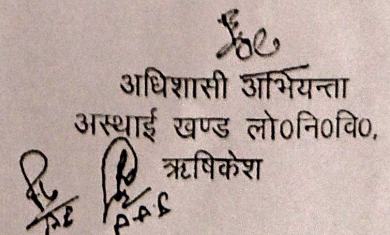 अधिशासी अभियन्ता
अस्थाई खण्ड लो०नि०वि०,
ऋषिकेश